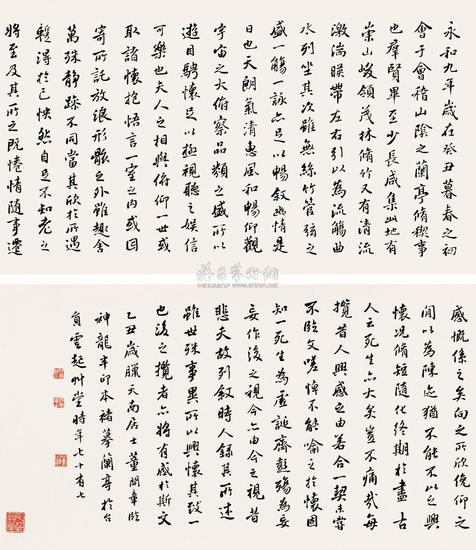 永和九年歲在癸丑暮春之初
會于會稽山陰之蘭亭脩禊事
也群賢畢至少長咸集此地有
崇山峻領茂林脩竹又有清流
激湍暎帶左右引以為流觴曲
水列坐其次雖無絲竹管弦之
盛一觴一詠亦足以暢敘幽情是
日也天朗氣清惠風和暢仰觀
宇宙之大俯察品類之盛所以
遊目騁懷足以極視聽之娛信
可樂也夫人之相與俯仰一世或
取諸懷抱悟言一室之內或因
寄所託放浪形骸之外雖趣舍
萬殊靜躁不同當其欣於所遇
暫得於己怏然自足不知老之
將至及其所之既惓情隨事遷
感慨係之矣向之所欣俛仰之
間以為陳迹猶不能不以之興
懷況脩短隨化終期於盡古
人云死生亦大矣豈不痛哉每
攬昔人興感之由若合一契未嘗
不臨文嗟悼不能喻之於懷固
知一死生為虛誕齊彭殤為妄
妄作後之視今亦由今之視昔
悲夫故列敘時人錄其所述
雖世殊事異所以興懷其致一
也後之攬者亦將有感於斯文
乙丑歲臘天南居士董開章臨
神龍半印本褚摹蘭亭於台
員雲起艸堂時年七十有七